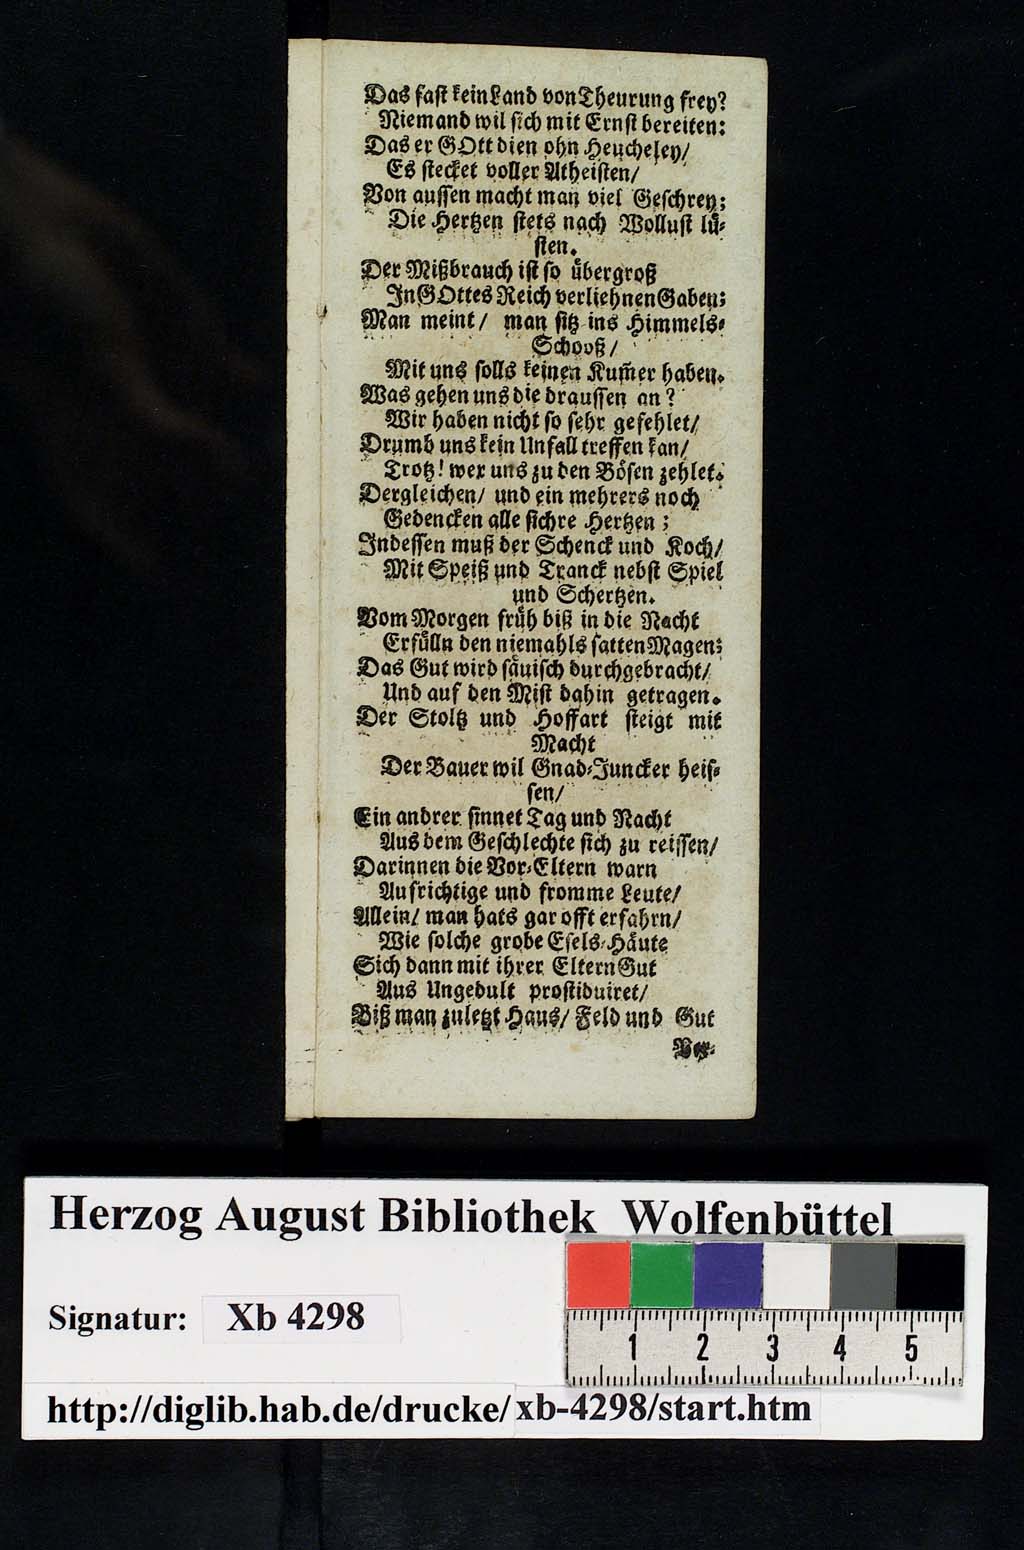 Das fast kein Land von Theurung frey?
Niemand wil sich mit Ernst bereiten:
Das er GOtt dien ohn Heucheley/
Es stecket voller Atheisten/
Von aussen macht man viel Geschrey;
Die Hertzen stets nach Wollust lü-
sten.
Der Mißbrauch ist so übergroß
In GOttes Reich verliehnen Gaben;
Man meint/ man sitz ins Himmels-
Schooß/
Mit uns solls keinen Kum̃er haben.
Was gehen uns die draussen an?
Wir haben nicht so sehr gefehlet/
Drumb uns kein Unfall treffen kan/
Trotz! wer uns zu den Bösen zehlet.
Dergleichen/ und ein mehrers noch
Gedencken alle sichre Hertzen;
Indessen muß der Schenck und Koch/
Mit Speiß und Tranck nebst Spiel
und Schertzen.
Vom Morgen früh biß in die Nacht
Erfülln den niemahls satten Magen;
Das Gut wird säuisch durchgebracht/
Und auf den Mist dahin getragen.
Der Stoltz und Hoffart steigt mit
Macht
Der Bauer wil Gnad-Juncker heis-
sen/
Ein andrer sinnet Tag und Nacht
Aus dem Geschlechte sich zu reissen/
Darinnen die Vor-Eltern warn
Aufrichtige und fromme Leute/
Allein/ man hats gar offt erfahrn/
Wie solche grobe Esels-Häute
Sich dann mit ihrer Eltern Gut
Aus Ungedult prostiduiret/
Biß man zuletzt Haus/ Feld und Gut
Ver-
Herzog August Bibliothek Wolfenbüttel
Signatur: Xb 4298
1 2 3 4 5
http://diglib.hab.de/drucke/xb-4298/start.htm